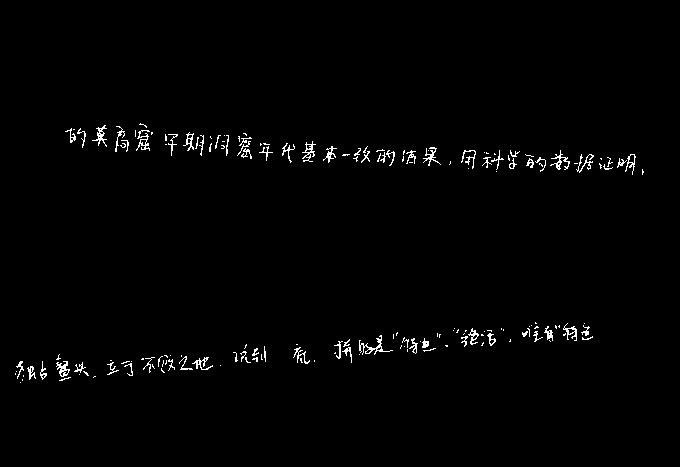 的莫高窟早期洞窟年代基本一致的结果,用科学的数据证明,
独占鳌头、立于不败之地,说到 底,拼的是“特色”、“绝活”,唯有“特色